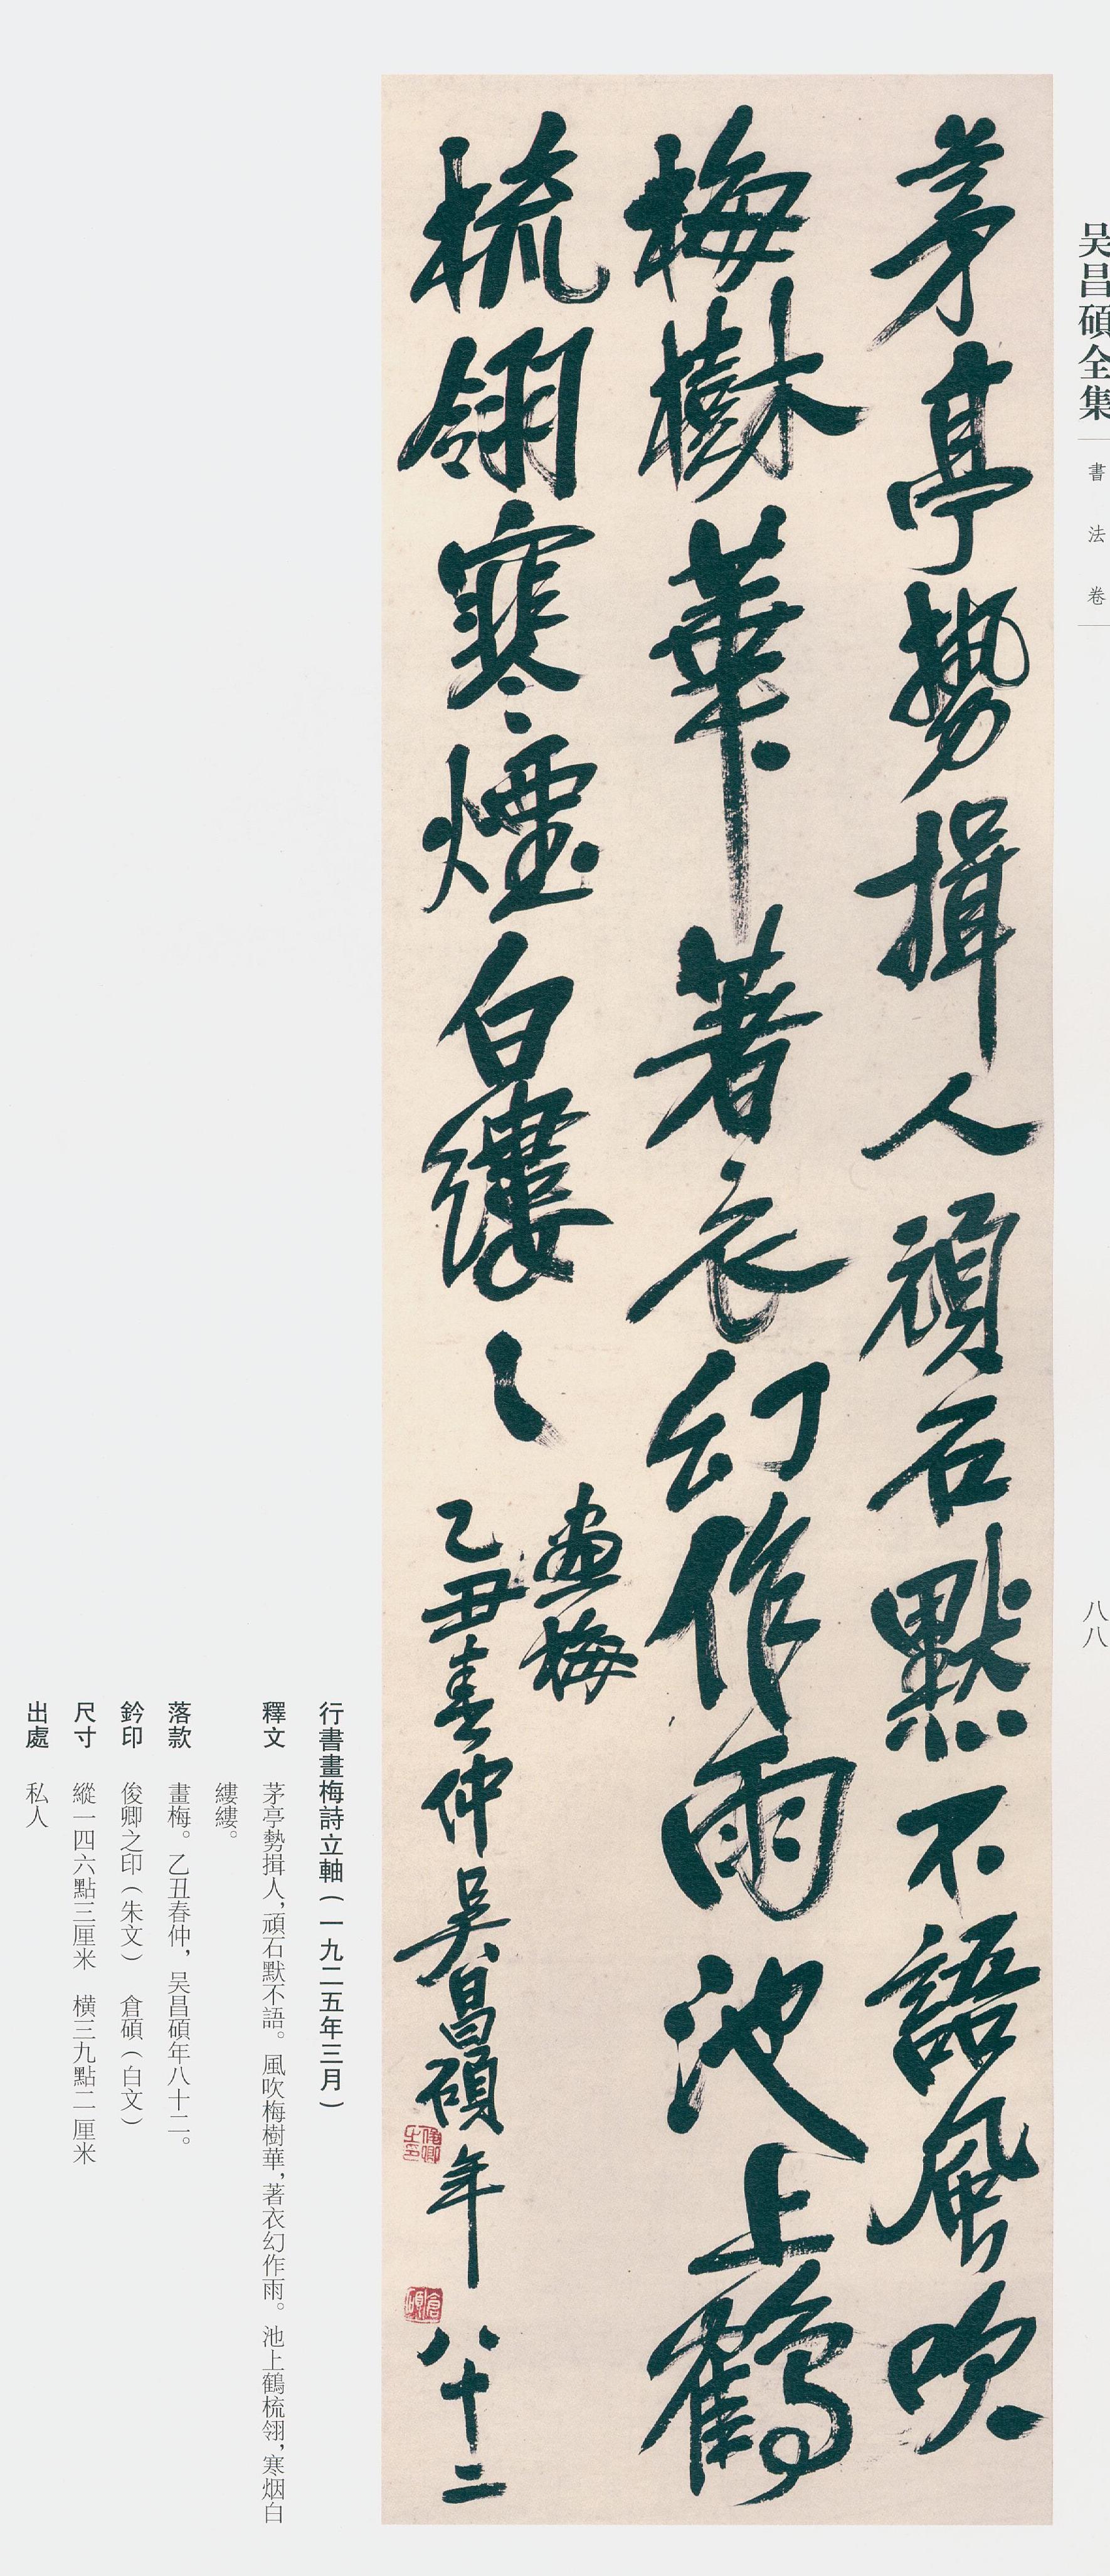 吴昌碩全集
書法卷
八八
茅亭勢揖人頑石默不語風吹
梅樹華著衣幻作雨池上鶴
梳翎寒煙白縷〻
畫梅
乙丑春仲吳昌碩年八十二
俊卿之印
倉碩
行書畫梅詩立軸（一九二五年三月）
釋文　茅亭勢揖人，頑石默不語。風吹梅樹華，著衣幻作雨。池上鶴梳翎，寒烟白
縷縷。
落款　畫梅。乙丑春仲，吴昌碩年八十二。
鈐印　俊卿之印（朱文）　倉碩（白文）
尺寸　縱一四六點三厘米　橫三九點二厘米
出處　私人